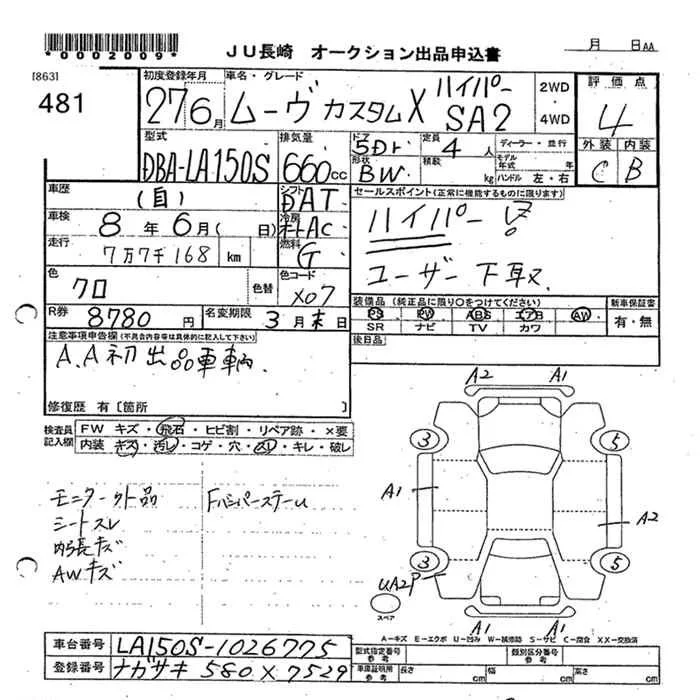 *0002009*
JU長崎 オークション出品申込書
月 日AA
[863]
481
初度登録年月
27 6月
車名・グレード
ムーヴ カスタムX ハイパー SA2
2WD・4WD
評価点
4
外装 内装
C B
型式
DBA-LA150S
排気量
660cc
ドア
5Dr
形状
BW
定員
4人
積載
kg
ディーラー・並行
モデル年式 年
ハンドル 左・右
車歴
(自)
シフト
DAT
車検
8年6月( 日)
冷房
オートAC
走行
7万7千168 km
燃料
G
色
クロ
色替
色コード
X07
R券
8780円
名変期限
3月末日
セールスポイント(正常に機能するものに限ります)
ハイパー
ユーザー下取
装備品(純正品に限り○をつけてください)
PS PW ABS エアB AW
SR ナビ TV カワ
新車保証書
有・無
後日品
注意事項申告欄(不具合内容等は具体的に記入して下さい)
A.A初出品車輌
修復歴 有〔箇所 〕
検査員記入欄
FW キズ・飛石・ヒビ割・リペア跡・×要
内装 キズ・汚レ・コゲ・穴・スレ・キレ・破レ
モニター外品 Fバンパーステー
シートスレ
内張キズ
AWキズ
A2 A1
3 5
A1 A2
3 5
UA2P
スペア
A1 A1
A-キズ E-エクボ U-凹み W-補修跡 S-サビ C-腐食 XX-交換済
車台番号
LA150S-1026775
登録番号
ナガサキ 580 X 7529
型式指定番号 参考
類別区分番号 参考
車庫証明用 参考
長さ cm 幅 cm 高さ cm